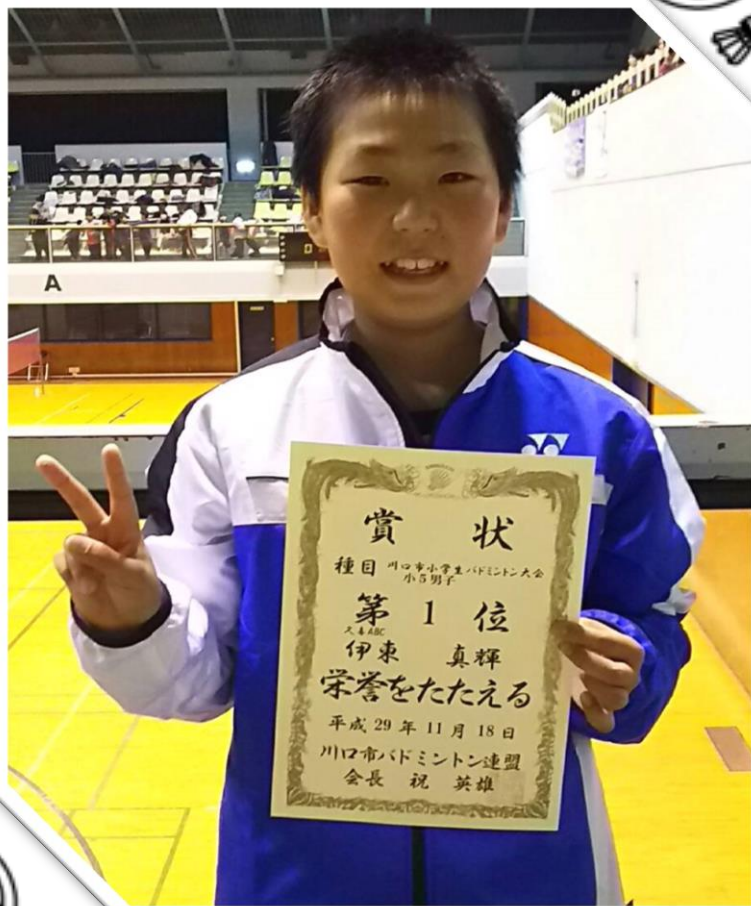 A
賞 状
種目 川口市小学生バドミントン大会
小5男子
第 1 位
久喜ABC
伊東 真輝
栄誉をたたえる
平成 29 年 11 月 18 日
川口市バドミントン連盟
会長 祝 英雄